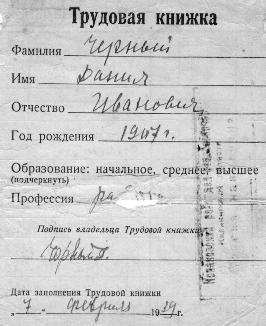 Трудовая книжка
Фамилия Черный
Имя Данил
Отчество Иванович
Год рождения 1907 г.
Образование: начальное, среднее, высшее
(подчеркнуть)
Профессия
Подпись владельца Трудовой книжки
Дата заполнения Трудовой книжки
„ 7 " февраля 1939 г.